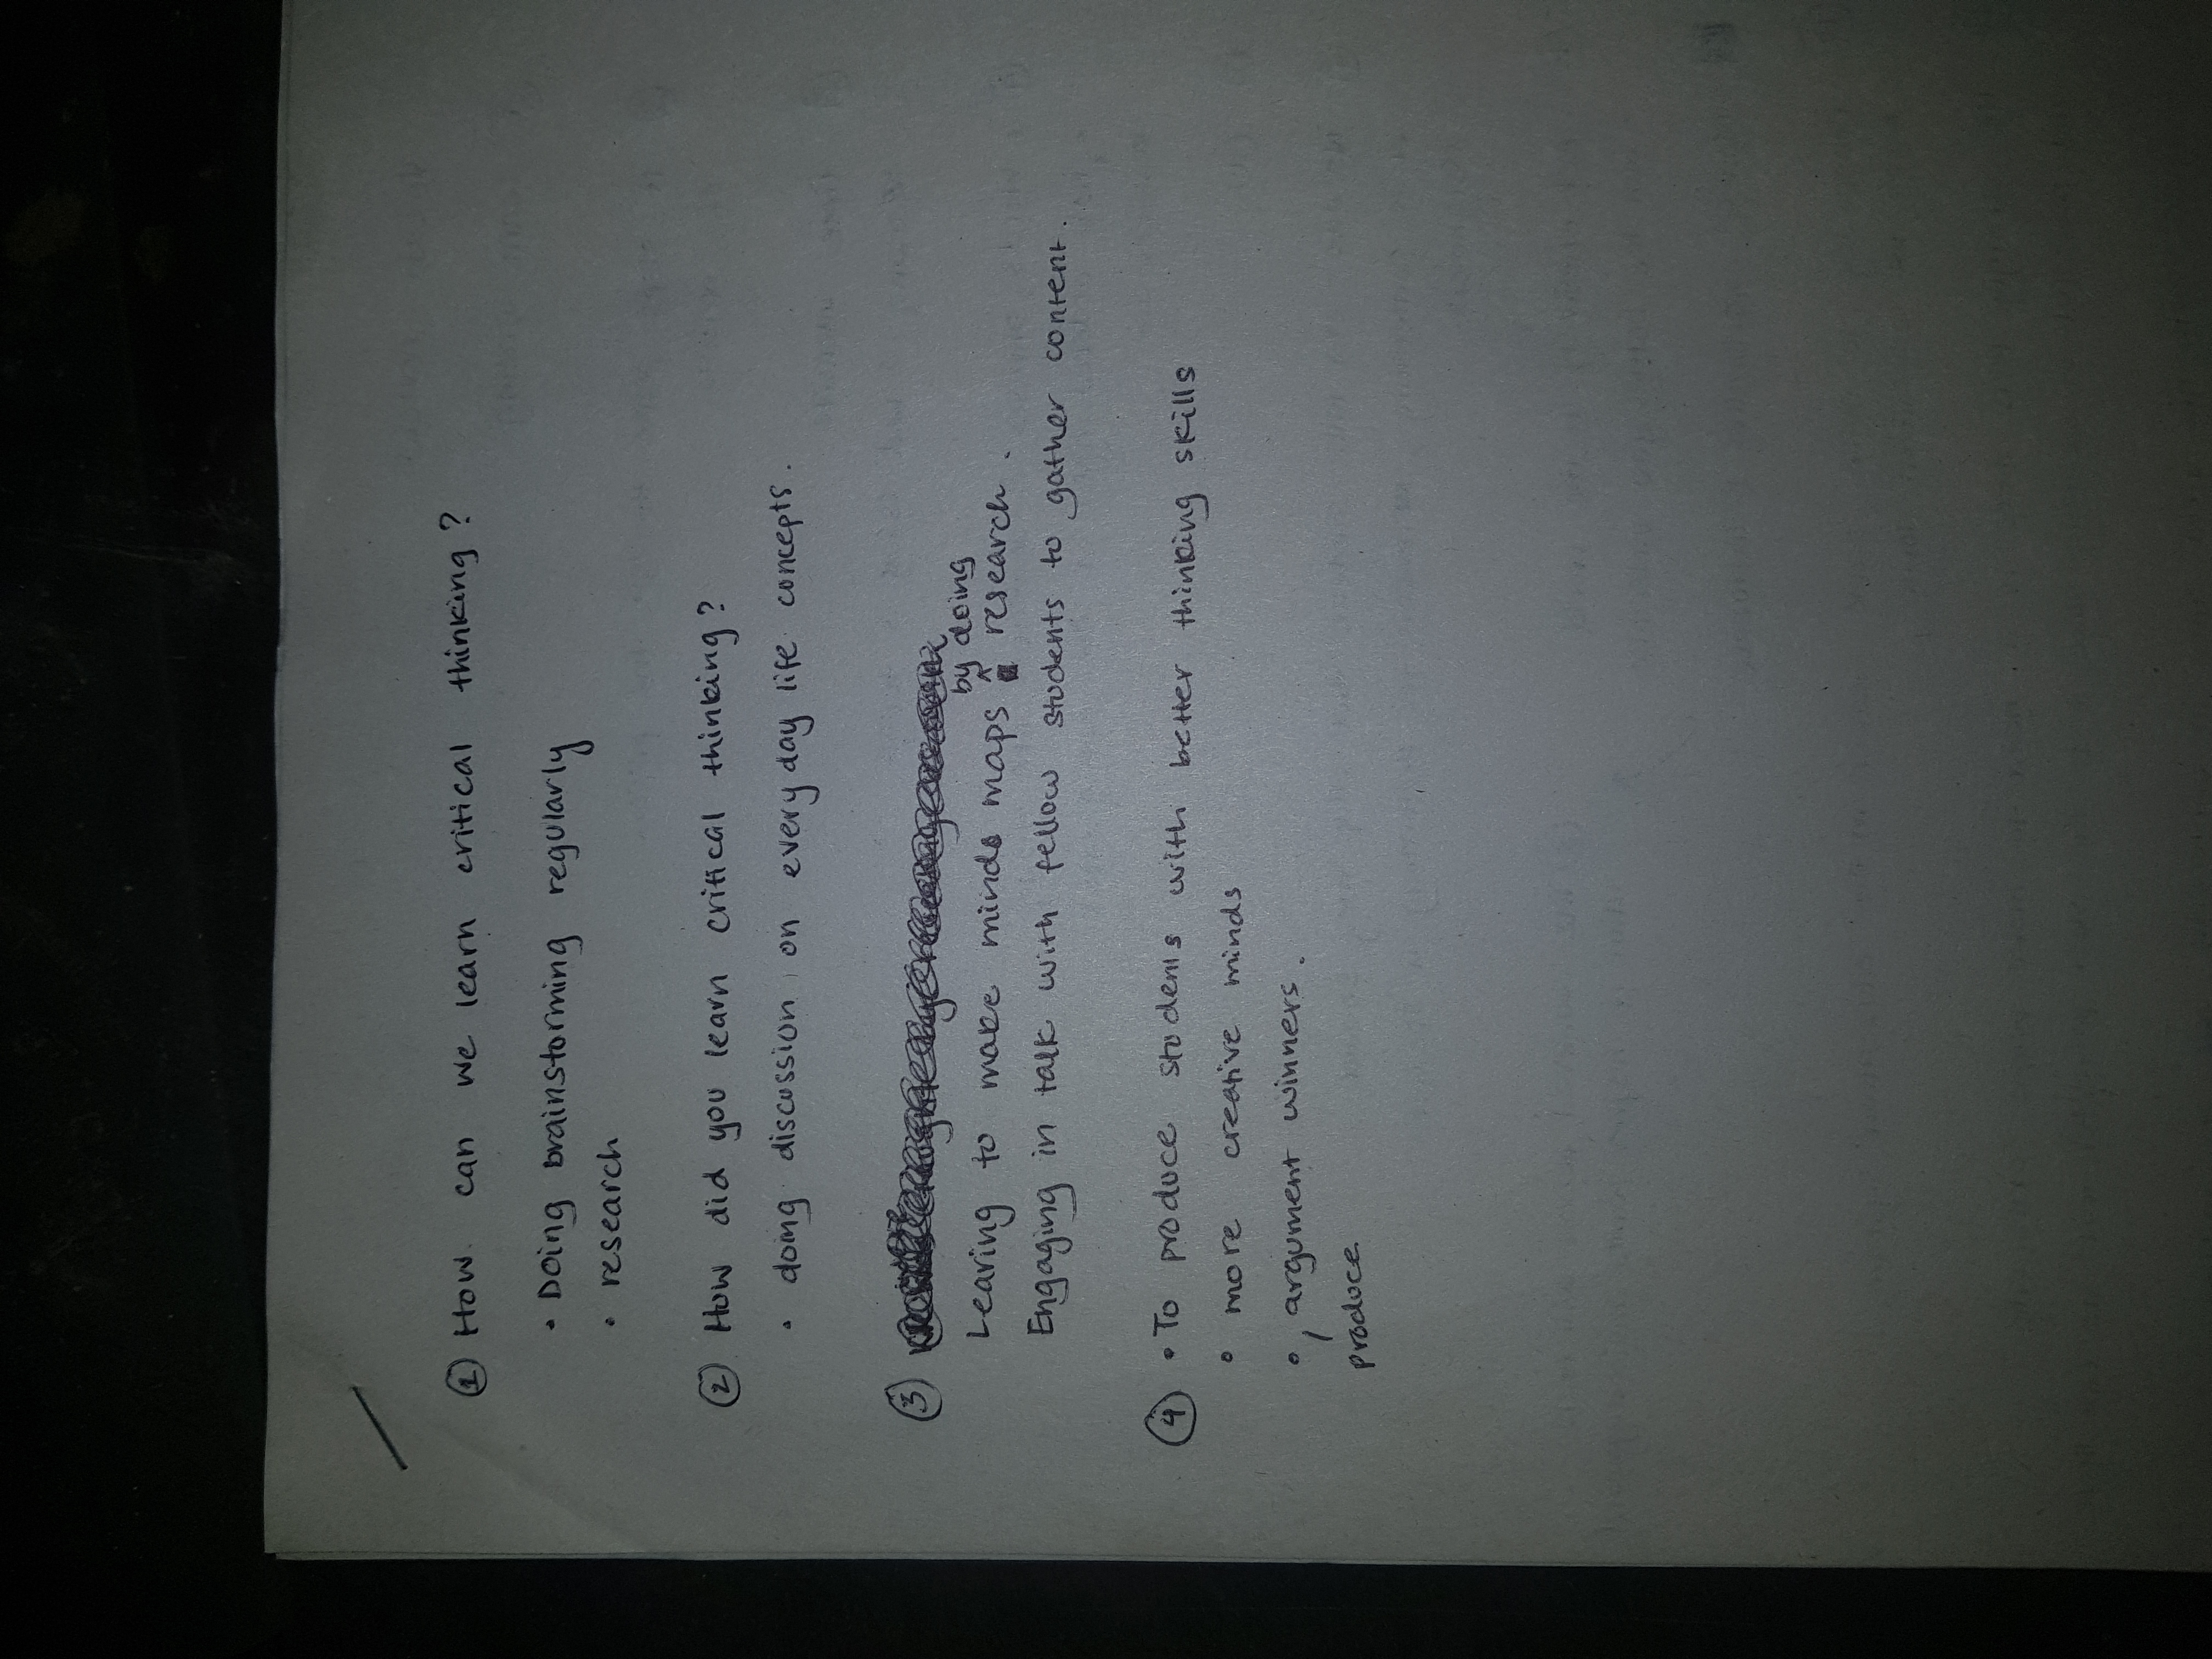 ① How can we learn critical thinking?
• Doing brainstorming regularly
• research
② How did you learn critical thinking?
• doing discussion on everyday life concepts.
③
by doing
Learing to make minds maps ^ research.
Engaging in talk with fellow students to gather content.
④ • To produce students with better thinking skills
• more creative minds
• , argument winners.
produce